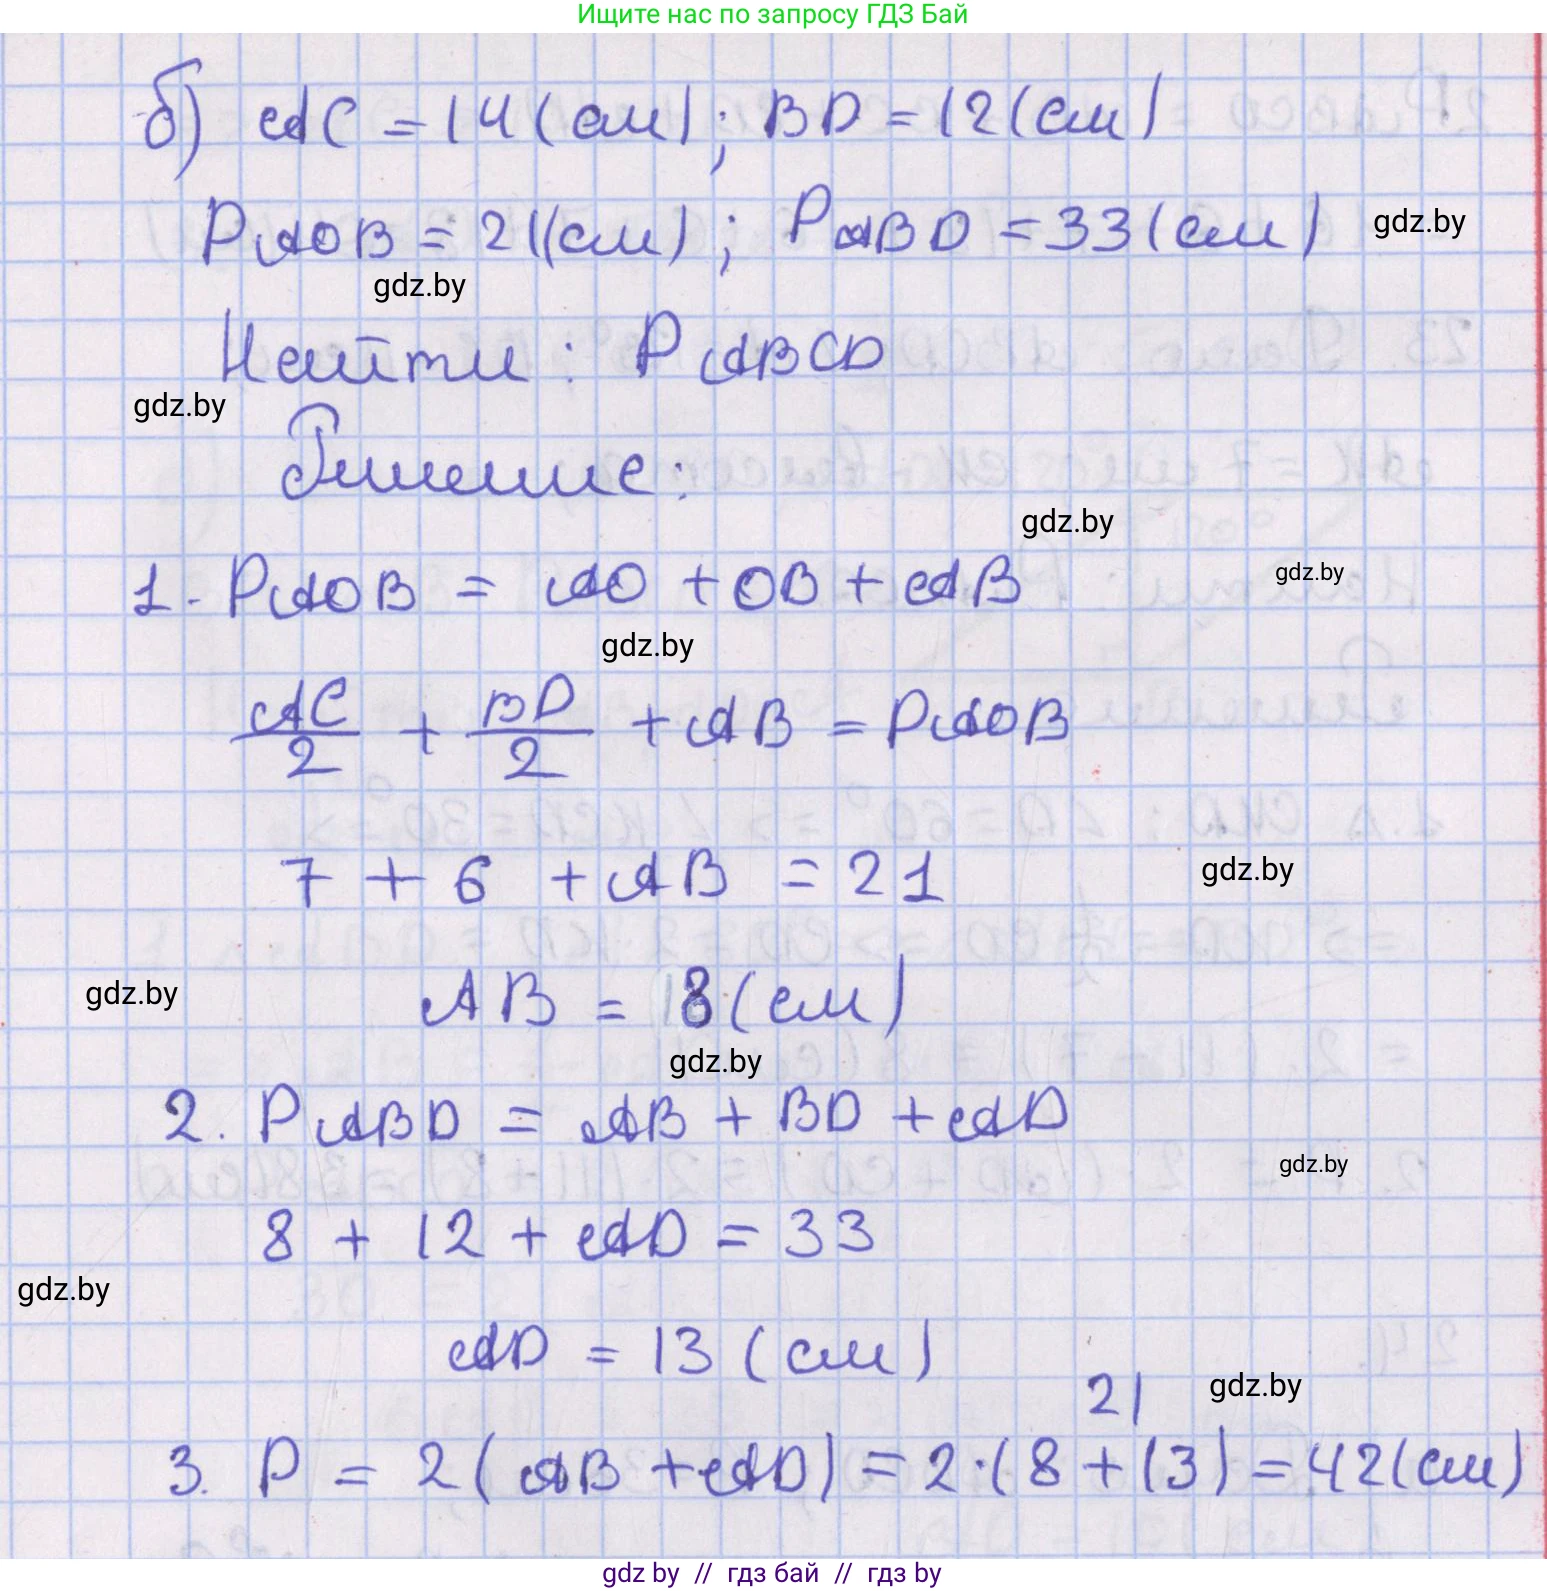 Ищите нас по запросу ГДЗ Бай
б) AC = 14 (см); BD = 12 (см)
PAOB = 21 (см); PABD = 33 (см)
gdz.by
gdz.by
Найти: PABCD
gdz.by
Решение:
gdz.by
gdz.by
1. PAOB = AO + OB + AB
gdz.by
AC/2 + BD/2 + AB = PAOB
7 + 6 + AB = 21
gdz.by
gdz.by
AB = 8 (см)
gdz.by
2. PABD = AB + BD + AD
gdz.by
8 + 12 + AD = 33
gdz.by
AD = 13 (см)
21
gdz.by
3. P = 2(AB + AD) = 2·(8 + 13) = 42 (см)
gdz.by // гдз бай // гдз by